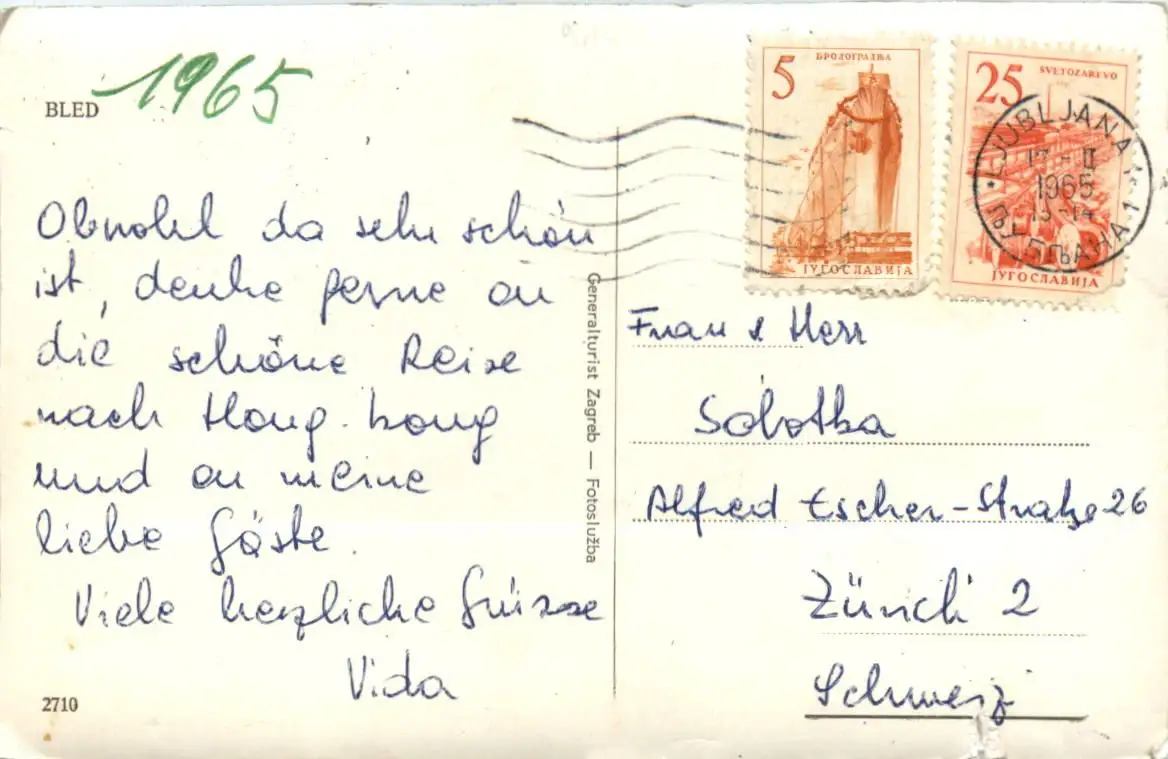 BLED
1965
Obwohl da sehr schön
ist, denke gerne an
die schöne Reise
nach Hong-kong
und an meine
liebe Gäste.
Viele herzliche Grüsse
Vida
2710
Generalturist Zagreb — Fotoslužba
5
БРОДОГРАДЊА
ЈУГОСЛАВИЈА
25
SVETOZAREVO
ЈУГОСЛАВИЈА
LJUBLJANA 1
17 - II
1965
13-14
ЉУБЉАНА 1
Frau & Herr
Sobotka
Alfred Escher-Straße 26
Zürich 2
Schweiz